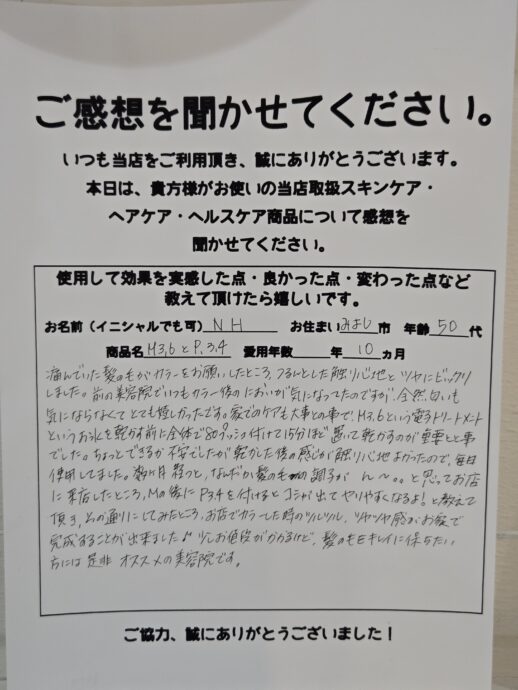 ご感想を聞かせてください。
いつも当店をご利用頂き、誠にありがとうございます。
本日は、貴方様がお使いの当店取扱スキンケア・
ヘアケア・ヘルスケア商品について感想を
聞かせてください。
使用して効果を実感した点・良かった点・変わった点など
教えて頂けたら嬉しいです。
お名前（イニシャルでも可） NH お住まい みよし 市 年齢 50 代
商品名 M3,6とP,3,4 愛用年数 年 10 ヵ月
痛んでいた髪の毛がカラーをお願いしたところ、つるんとした触り心地とツヤにビックリ
しました。前の美容院でいつもカラー後のにおいが気になってたのですが、全然、匂いも
気にならなくてとても嬉しかったです。家でのケアも大事との事で、M3,6という電子トリートメント
というお水を乾かす前に全体で80プッシュ付けて15分ほど置いて乾かすのが重要との事
でした。ちょっとできるか不安でしたが乾かした後の感じが触り心地よかったので、毎日
使用してました。数ヶ月経つと、なんだか髪の毛の調子が ん〜。。と思ってお店
に来店したところ、Mの後にP34を付けるとコシが出てやりやすくなるよ！と教えて
頂き、その通りにしてみたところ、お店でカラーした時のツルツル、ツヤツヤ感がお家で
完成することが出来ました♪少しお値段がかかるけど、髪の毛をキレイに保ちたい
方には是非オススメの美容院です。
ご協力、誠にありがとうございました！